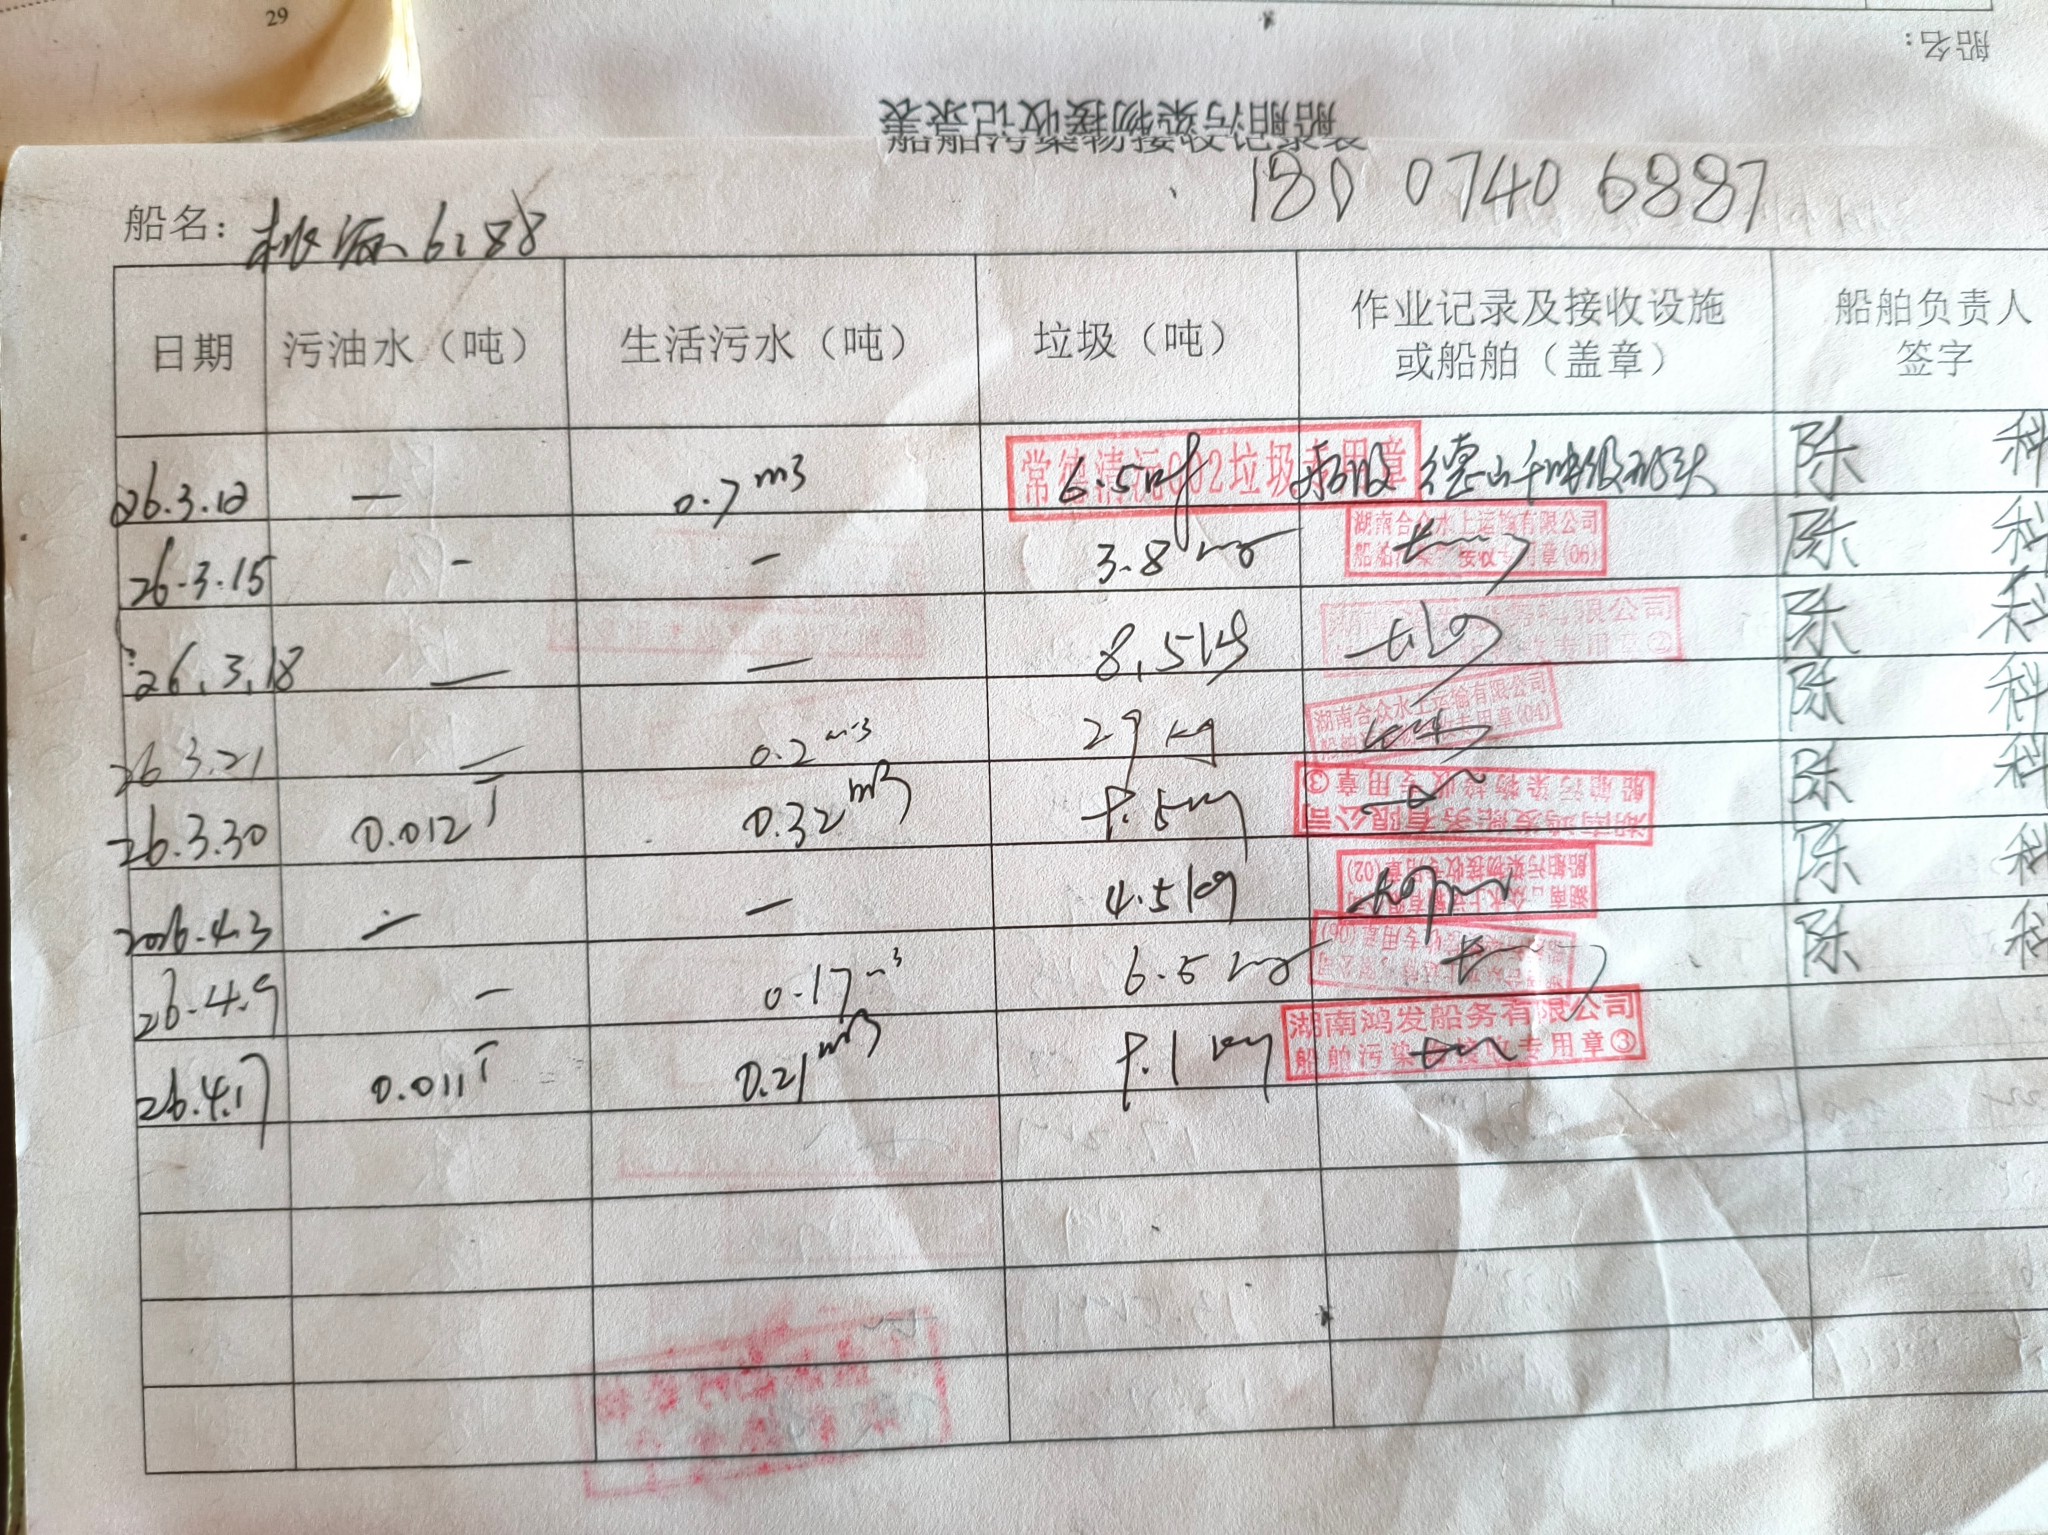 29
船名：
船舶污染物接收记录表
船舶污染物接收记录表
180 0740 6887
船名：桃源6288
日期 污油水（吨） 生活污水（吨） 垃圾（吨） 作业记录及接收设施或船舶（盖章） 船舶负责人签字
26.3.12 — 0.7m3 6.5kg 常德清污002垃圾专用章 德山千吨级码头 陈科
26.3.15 - - 3.8kg 湖南合众水上运输有限公司 船舶污染物接收专用章(06) 陈科
26.3.18 — — 8.5kg 限公司 陈科
26.3.21 — 0.2m3 29kg 湖南合众水上运输有限公司 专用章(04) 陈科
26.3.30 0.012T 0.32m3 8.5kg 湖南鸿发船务有限公司 船舶污染物接收专用章③ 陈科
2026.4.3 — — 4.5kg 船舶污染物接收专用章(02) 陈科
26.4.9 - 0.17m3 6.5kg 陈科
26.4.17 0.011T 0.21m3 8.1kg 湖南鸿发船务有限公司 船舶污染物接收专用章③